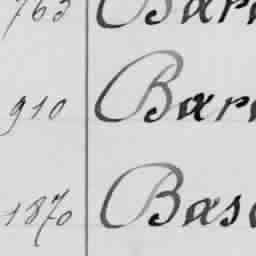 763 Bar
910 Bar
1870 Bas